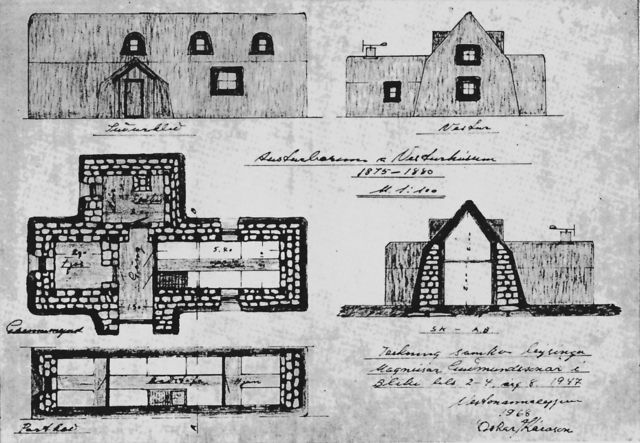 Suðurhlið
Vestur
Austurbærinn á Vesturhúsum
1875-1880
M 1:100
Göng
Grunnmynd
SK - AB
Teikning samkv lýsingu
Magnúsar Guðmundssonar í
Bliki bls 2-4, arg 8. 1947
Vestmannaeyjum
1968
Óskar Kárason
Baðstofa
Porthæð